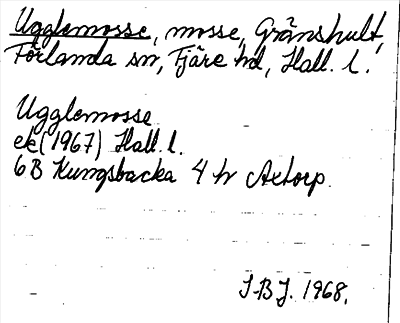 Ugglemosse, mosse, Gränshult,
Förlanda sn, Fjäre hd, Hall. l.
Ugglemosse
ek (1967) Hall. l.
6B Kungsbacka 4 h Axtorp.
J-BJ. 1968.